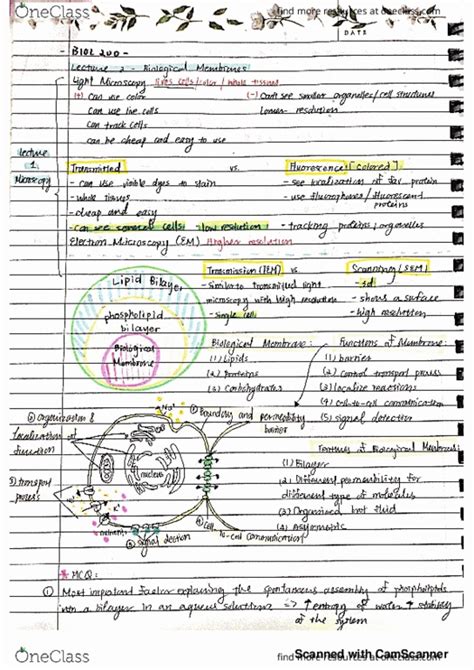 OneClass
find more resources at oneclass.com
DATE
- BIOL 200 -
Lecture 2 - Biological Membranes
Light Microscopy lives cells/color / whole tissues
(+) Can use color
(-) Can't see smaller organelles/cell structures
Can use live cells
Lower resolution
Can track cells
Can be cheap and easy to use
lecture
1
Microscopy
Transmitted
vs.
Fluorescence [colored]
- can use visible dyes to stain
- see localization of fav protein
- whole tissues
- use fluorophores/fluorescent proteins
- cheap and easy
- can see several cells, low resolution
- tracking proteins, organelles
Electron Microscopy (EM) Higher resolution
Transmission (TEM) vs
Scanning (SEM)
- Similar to transmitted light
microscopy with high resolution
- shows a surface
- single cell
- high resolution
Lipid Bilayer
phospholipid
bilayer
Biological
Membrane
Biological Membrane:
Functions of Membrane:
(1) Lipids
(1) barriers
(2) Proteins
(2) Control transport process
(3) Carbohydrates
(3) localize reactions
(4) Cell-to-cell communication
(5) signal detection
② Organization &
localization of
function
Na+
① Boundary and permeability
barrier
nucleus
③ transport
process
K+
nutrients
④ signal dection
⑤ Cell-
to-cell communication
Features of Biological Membranes:
(1) Bilayer
(2) Different permeability for
different type of molecules
(3) Organised but fluid
(4) Asymetric
* MCQ:
① Most important factor explaining the spontaneous assembly of phospholipids
into a bilayer in an aqueous solution => ↑ entropy of water ↑ stability
of the system
Scanned with CamScanner
OneClass
find more resources at oneclass.com